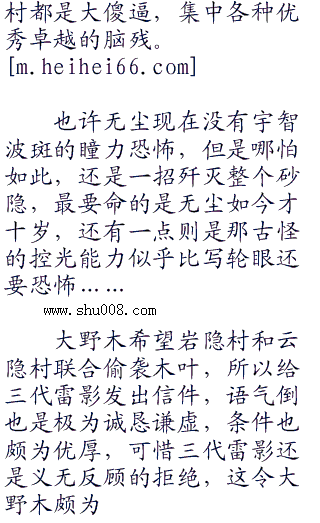 村都是大傻逼，集中各种优
秀卓越的脑残。
[m.heihei66.com]
也许无尘现在没有宇智
波斑的瞳力恐怖，但是哪怕
如此，还是一招歼灭整个砂
隐，最要命的是无尘如今才
十岁，还有一点则是那古怪
的控光能力似乎比写轮眼还
要恐怖……
www.shu008.com
大野木希望岩隐村和云
隐村联合偷袭木叶，所以给
三代雷影发出信件，语气倒
也是极为诚恳谦虚，条件也
颇为优厚，可惜三代雷影还
是义无反顾的拒绝，这令大
野木颇为